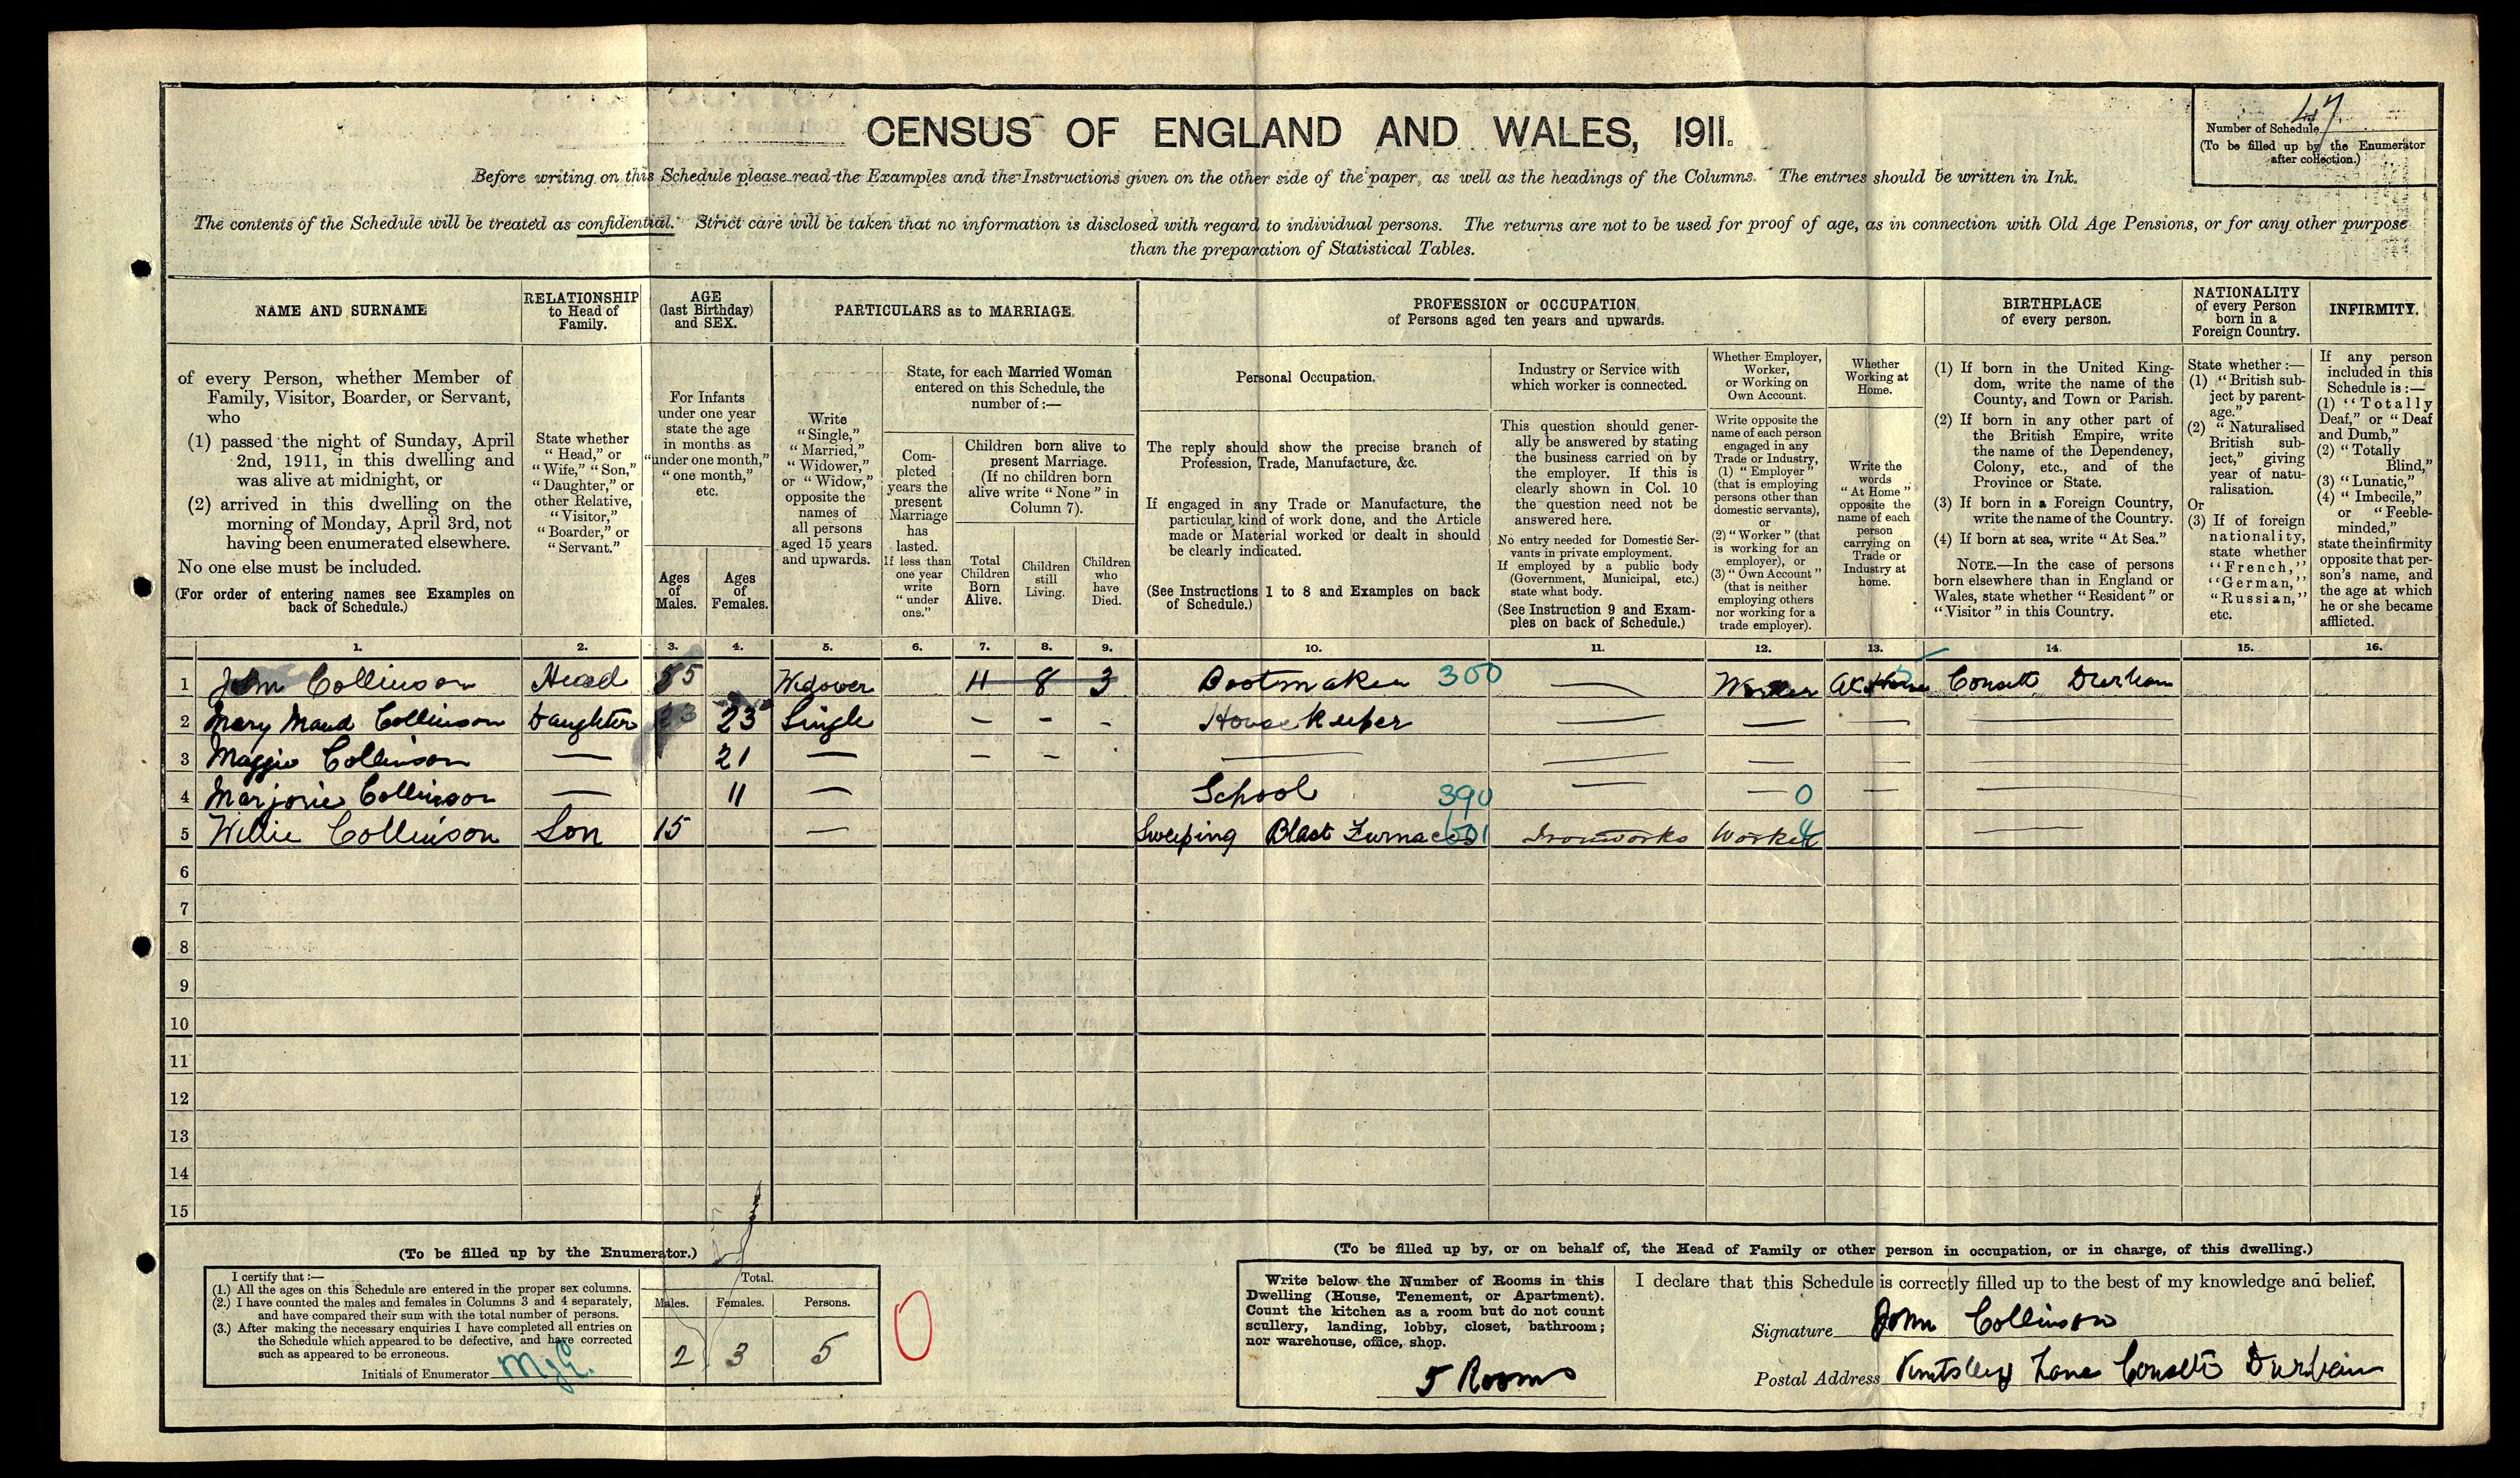 CENSUS OF ENGLAND AND WALES, 1911.
47
Number of Schedule
(To be filled up by the Enumerator
after collection.)
Before writing on this Schedule please read the Examples and the Instructions given on the other side of the paper, as well as the headings of the Columns. The entries should be written in Ink.
The contents of the Schedule will be treated as confidential. Strict care will be taken that no information is disclosed with regard to individual persons. The returns are not to be used for proof of age, as in connection with Old Age Pensions, or for any other purpose
than the preparation of Statistical Tables.
NAME AND SURNAME
of every Person, whether Member of
Family, Visitor, Boarder, or Servant,
who
(1) passed the night of Sunday, April
2nd, 1911, in this dwelling and
was alive at midnight, or
(2) arrived in this dwelling on the
morning of Monday, April 3rd, not
having been enumerated elsewhere.
No one else must be included.
(For order of entering names see Examples on
back of Schedule.)
RELATIONSHIP
to Head of
Family.
State whether
"Head," or
"Wife," "Son,"
"Daughter," or
other Relative,
"Visitor,"
"Boarder," or
"Servant."
AGE
(last Birthday)
and SEX.
For Infants
under one year
state the age
in months as
"under one month,"
"one month,"
etc.
Ages
of
Males.
Ages
of
Females.
PARTICULARS as to MARRIAGE.
Write
"Single,"
"Married,"
"Widower,"
or "Widow,"
opposite the
names of
all persons
aged 15 years
and upwards.
State, for each Married Woman
entered on this Schedule, the
number of:—
Com-
pleted
years the
present
Marriage
has
lasted.
If less than
one year
write
"under
one."
Children born alive to
present Marriage.
(If no children born
alive write "None" in
Column 7).
Total
Children
Born
Alive.
Children
still
Living.
Children
who
have
Died.
PROFESSION or OCCUPATION
of Persons aged ten years and upwards.
Personal Occupation.
The reply should show the precise branch of
Profession, Trade, Manufacture, &c.
If engaged in any Trade or Manufacture, the
particular kind of work done, and the Article
made or Material worked or dealt in should
be clearly indicated.
(See Instructions 1 to 8 and Examples on back
of Schedule.)
Industry or Service with
which worker is connected.
This question should gener-
ally be answered by stating
the business carried on by
the employer. If this is
clearly shown in Col. 10
the question need not be
answered here.
No entry needed for Domestic Ser-
vants in private employment.
If employed by a public body
(Government, Municipal, etc.)
state what body.
(See Instruction 9 and Exam-
ples on back of Schedule.)
Whether Employer,
Worker,
or Working on
Own Account.
Write opposite the
name of each person
engaged in any
Trade or Industry,
(1) "Employer"
(that is employing
persons other than
domestic servants),
or
(2) "Worker" (that
is working for an
employer), or
(3) "Own Account"
(that is neither
employing others
nor working for a
trade employer).
Whether
Working at
Home.
Write the
words
"At Home"
opposite the
name of each
person
carrying on
Trade or
Industry at
home.
BIRTHPLACE
of every person.
(1) If born in the United King-
dom, write the name of the
County, and Town or Parish.
(2) If born in any other part of
the British Empire, write
the name of the Dependency,
Colony, etc., and of the
Province or State.
(3) If born in a Foreign Country,
write the name of the Country.
(4) If born at sea, write "At Sea."
NOTE.—In the case of persons
born elsewhere than in England or
Wales, state whether "Resident" or
"Visitor" in this Country.
NATIONALITY
of every Person
born in a
Foreign Country.
State whether:—
(1) "British sub-
ject by parent-
age."
(2) "Naturalised
British sub-
ject," giving
year of natu-
ralisation.
Or
(3) If of foreign
nationality,
state whether
"French,"
"German,"
"Russian,"
etc.
INFIRMITY.
If any person
included in this
Schedule is:—
(1) "Totally
Deaf," or "Deaf
and Dumb,"
(2) "Totally
Blind,"
(3) "Lunatic,"
(4) "Imbecile,"
or "Feeble-
minded,"
state the infirmity
opposite that per-
son's name, and
the age at which
he or she became
afflicted.
1. 2. 3. 4. 5. 6. 7. 8. 9. 10. 11. 12. 13. 14. 15. 16.
1 John Collinson Head 55 Widower 11 8 3 Bootmaker 350 — Worker At Home Consett Durham
2 Mary Maud Collinson Daughter 23 Single — — — Housekeeper — — — —
3 Maggie Collinson — 21 — — — — — — — —
4 Marjorie Collinson — 11 — School 390 — — 0 — —
5 Willie Collinson Son 15 — Sweeping Blast Furnaces Ironworks Worker —
6
7
8
9
10
11
12
13
14
15
(To be filled up by the Enumerator.)
I certify that:—
(1.) All the ages on this Schedule are entered in the proper sex columns.
(2.) I have counted the males and females in Columns 3 and 4 separately,
and have compared their sum with the total number of persons.
(3.) After making the necessary enquiries I have completed all entries on
the Schedule which appeared to be defective, and have corrected
such as appeared to be erroneous.
Initials of Enumerator
Total.
Males. Females. Persons.
2 3 5
0
(To be filled up by, or on behalf of, the Head of Family or other person in occupation, or in charge, of this dwelling.)
Write below the Number of Rooms in this
Dwelling (House, Tenement, or Apartment).
Count the kitchen as a room but do not count
scullery, landing, lobby, closet, bathroom;
nor warehouse, office, shop.
5 Rooms
I declare that this Schedule is correctly filled up to the best of my knowledge and belief.
Signature John Collinson
Postal Address Lane Consett Durham